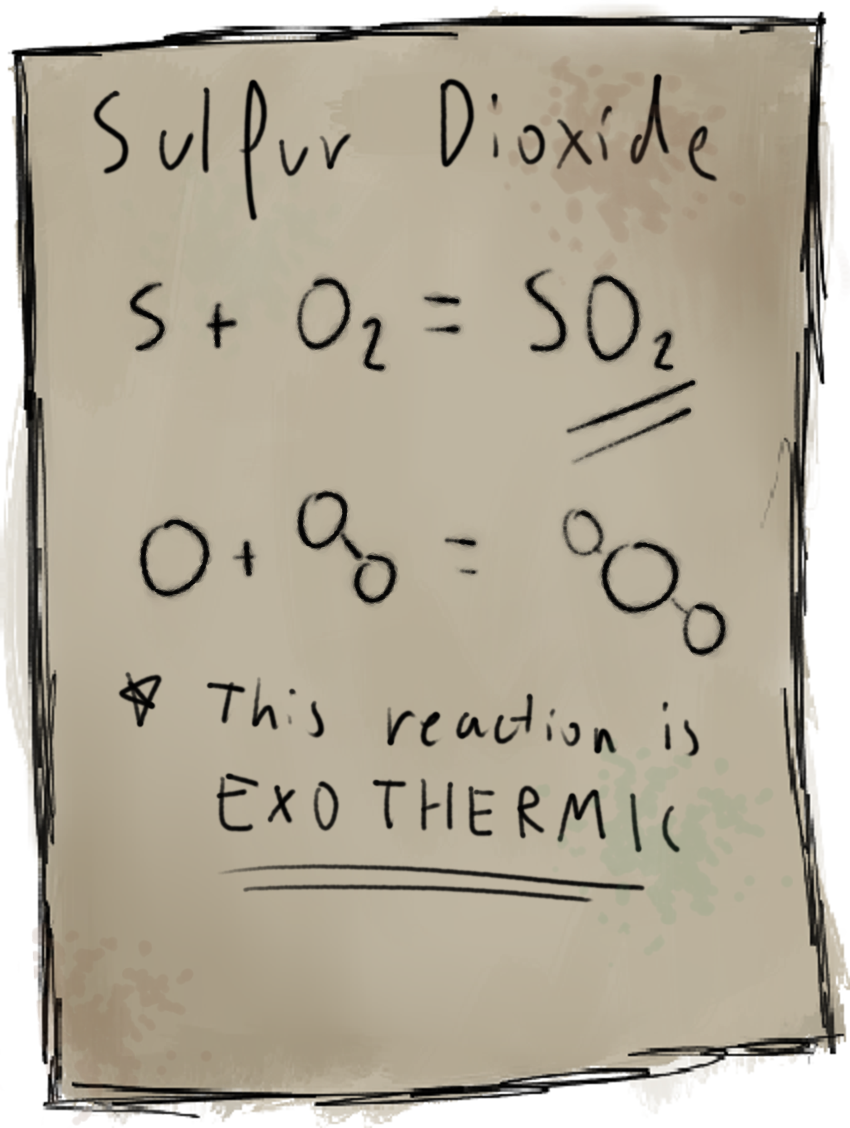 Sulpur Dioxide
S + O₂ = SO₂
+ =
This reaction is
EXOTHERMIC